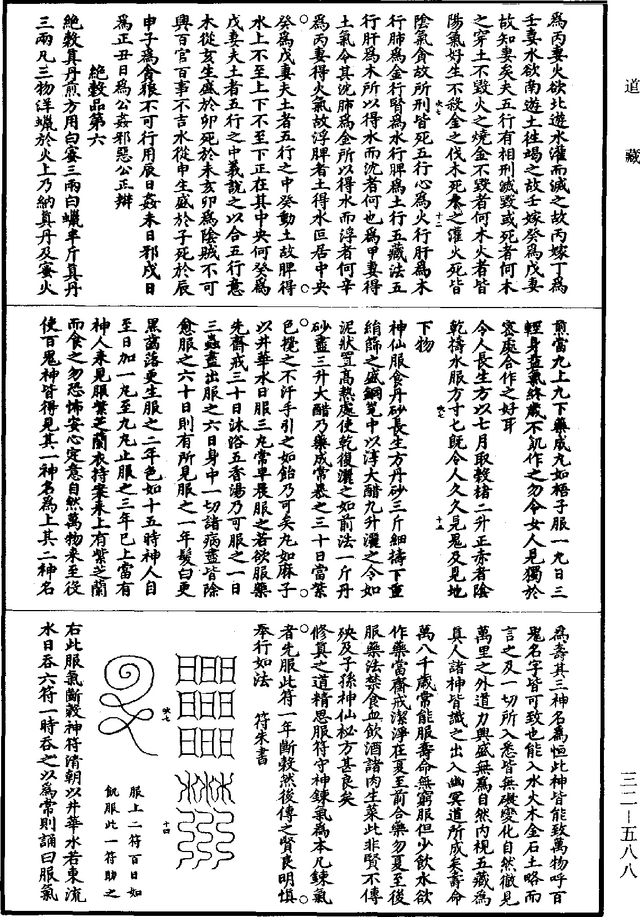 道藏
為丙妻火欲北遊水灌而滅之故丙嫁丁為
壬妻水欲南遊土往竭之故壬嫁癸為戊妻
故知妻矣夫五行有相刑滅毀或死者何木
之穿土不毀火之燒金不毀者何木火者皆
陽氣好生不殺金之伐木死水之灌火死皆
陰氣貪故所刑皆死五行心為火行肝為木
行肺為金行腎為水行脾為土行五藏法五
行肝為木所以得水而沈者何也為甲妻得
土氣令其沈肺為金所以得水而浮者何辛
為丙妻得火氣故浮脾者土得水叵居中央
癸為戊妻夫土者五行之中癸動土故脾得
水上不至上下不至下正在其中央何癸為
戊妻夫土者五行之中義說之以合五行意
木從亥生盛於卯死於未亥卯為陰賊不可
與百官百事不吉水從申生盛於子死於辰
申子為貪狠不可行用辰日姦未日邪戌日
為正丑日為公姦邪惡公正辯
絕穀品第六
絕穀真丹煎方用白蜜三兩白蠟半斤真丹
三兩凡三物洋蠟於火上乃納真丹及蜜火
煎當九上九下藥成丸如梧子服一丸日三
輕身益氣終歲不飢作之勿令女人見獨於
密處合作之好耳
令人長生方以七月取穀楮二升正赤者陰
乾禱水服方寸七既令人久久見鬼及見地
下物
神仙服食丹砂長生方丹砂三斤細擣下重
絹篩之盛銅筧中以淳大醋九升灑之令如
泥狀置高熱處使乾復灑之如前法一斤丹
砂盡三升大醋乃藥成常暴之三十日當紫
色攪之不汙手引之如飴乃可矣丸如麻子
以井華水日服三丸常早晨服之若欲服藥
先齋戒三十日沐浴五香湯乃可服之一日
三蟲盡出服之六日身中一切諸病盡皆除
愈服之六十日則有所見服之一年髮白更
黑齒落更生服之二年色如十五時神人自
至日加一丸至九丸止服之三年已上當有
神人來見服紫芝蘭衣持藥來上有紫芝蘭
而食之勿恐怖安心定意自然萬物來至役
使百鬼神皆得見其一神名為上其二神名
為壽其三神名為恒此神皆能致萬物呼百
鬼名字皆可致也能入水火木金石土略而
言之及一切所入悉皆無礙變化自然徹見
萬里之外道力興盛無為自然內視五藏為
真人諸神皆識之出入幽冥道所成矣壽命
萬八千歲常能服壽命無窮服但少飲水欲
作藥當齋戒潔淨在夏至前合藥勿夏至後
服藥法禁食血飲酒諸肉生菜此非賢不傳
殃及子孫神仙秘方甚良矣
修真之道精思服符守神鍊氣為本凡鍊氣
者先服此符一年斷穀然後傳之賢良明慎
奉行如法　符朱書
服上二符百日如
飢服此一符助之
右此服氣斷穀神符清朝以井華水若東流
水日吞六符一時吞之以為常則誦曰服氣
三二—五八八